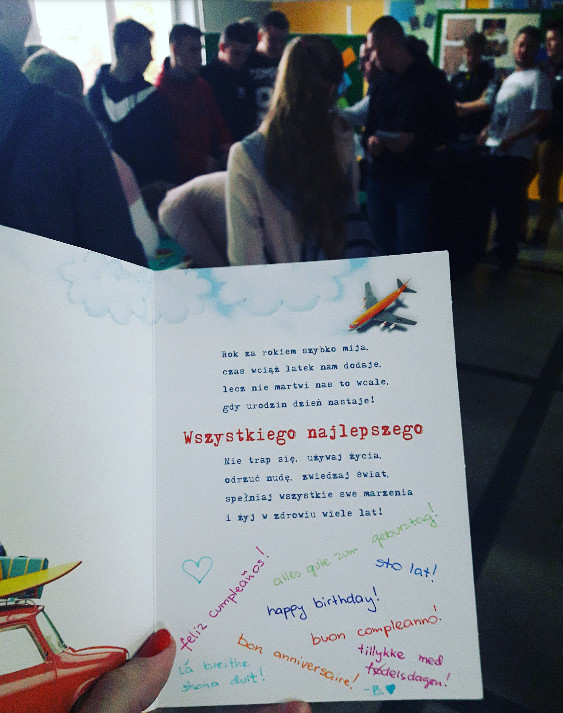 Rok za rokiem szybko mija,
czas wciąż latek nam dodaje,
lecz nie martwi nas to wcale,
gdy urodzin dzień nastaje!
Wszystkiego najlepszego
Nie trap się, używaj życia,
odrzuć nudę, zwiedzaj świat,
spełniaj wszystkie swe marzenia
i żyj w zdrowiu wiele lat!
feliz cumpleaños!
alles gute zum geburstag!
sto lat!
happy birthday!
buon compleanno!
bon anniversaire!
tillykke med
fødelsdagen!
Lá breithe
shona duit!
-B.